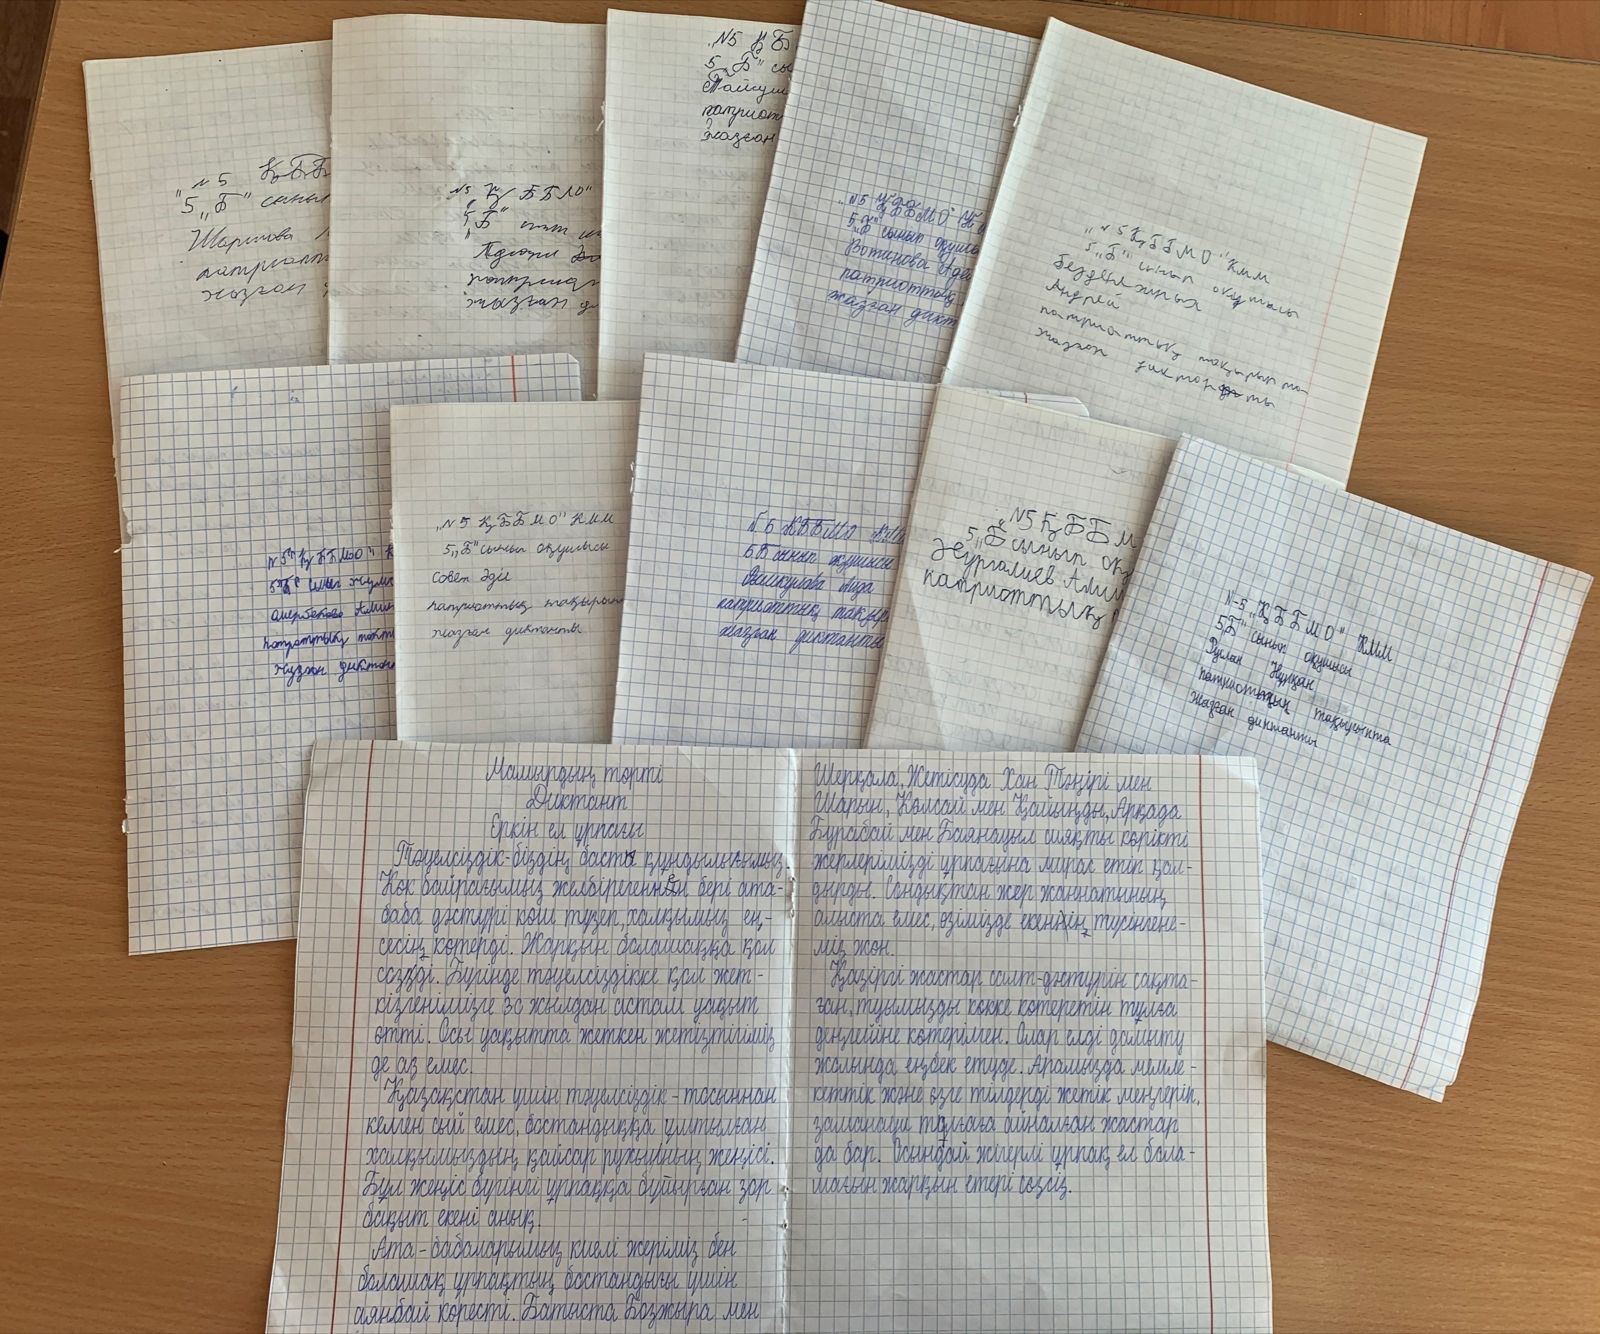 "№5 ҚББ
5 „Б" сынып
Шарипова
патриотт
жазған
№5 „ҚББМО"
5 „Б"
жазған
„№5 ҚБ
5 „Б" сы
патриот
жазған
„№5 ҚББМО"
5 „Б" сынып оқушы
Вотинова Аде
патриоттық
жазған дикт
„№5 ҚББМО" КММ
5 „Б" сынып оқушысы
Бездельных
Андрей
патриоттық тақырыпта
жазған
№5 "ҚББМО" К
5 "Б"
жазған диктан
„№5 ҚББМО" КММ
5 „Б" сынып оқушысы
Совет Әди
патриоттық тақырып
жазған диктанты
№5 ҚББМО КММ
5Б сынып оқушысы
патриоттық тақыр
жазған диктанты
"№5 ҚББМ
5 „Б" сынып оқу
Нургалиев Амин
патриоттық
№5 „ҚББМО" КММ
5 „Б" сынып оқушысы
Руслан Нұрқан
патриоттық тақырыпта
жазған диктанты
Мамырдың төрті
Диктант
Еркін ел ұрпағы
Тәуелсіздік-біздің басты құндылығымыз.
Көк байрағымыз желбірегеннен бері ата-
баба дәстүрі көш түзеп, халқымыз ең-
сесін көтерді. Жарқын болашаққа қол
созды. Бүгінде тәуелсіздікке қол жет-
кізгенімізге 30 жылдан астам уақыт
өтті. Осы уақытта жеткен жетістігіміз
де аз емес.
Қазақстан үшін тәуелсіздік - тосыннан
келген сый емес, бостандыққа ұмтылған
халқымыздың қайсар рухының жеңісі.
Бұл жеңіс бүгінгі ұрпаққа бұйырған зор
бақыт екені анық.
Ата - бабаларымыз киелі жеріміз бен
болашақ ұрпақтың бостандығы үшін
аянбай күресті. Батыста Бозжыра мен
Шерқала, Жетісуда Хан Тәңірі мен
Шарын, Көлсай мен Қайыңды, Арқада
Бурабай мен Баянауыл сияқты көрікті
жерлерімізді ұрпағына мирас етіп қал-
дырды. Сондықтан жер жаннатының
алыста емес, өзімізде екенін түсінгені-
міз жөн.
Қазіргі жастар салт-дәстүрін сақта-
ған, туымызды көкке көтеретін тұлға
деңгейіне көтерілген. Олар елді дамыту
жолында еңбек етуде. Арамызда мемле-
кеттік және өзге тілдерді жетік меңгеріп,
заманауи тұлғаға айналған жастар
да бар. Осындай жігерлі ұрпақ ел бола-
шағын жарқын етері сөзсіз.